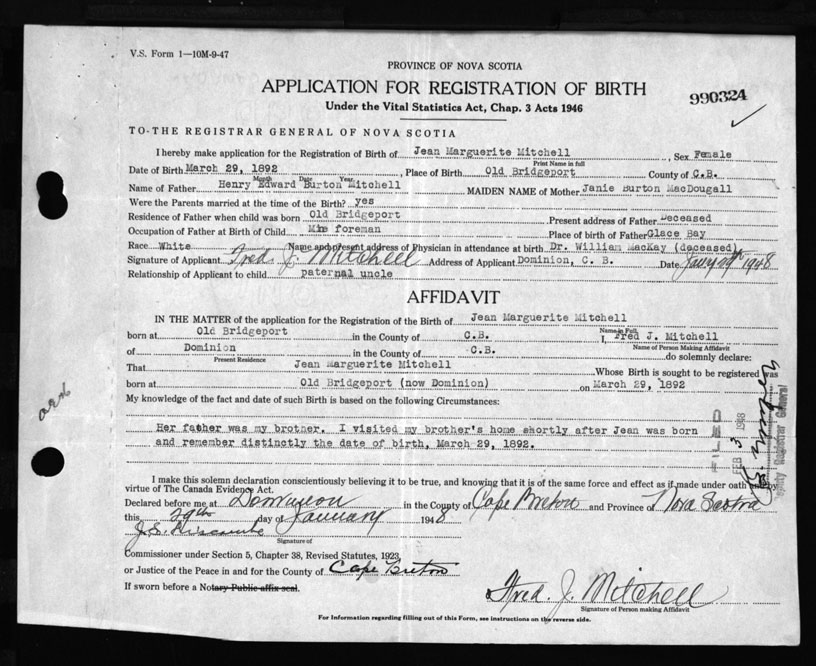 V.S. Form 1—10M-9-47
PROVINCE OF NOVA SCOTIA
APPLICATION FOR REGISTRATION OF BIRTH
990324
Under the Vital Statistics Act, Chap. 3 Acts 1946
TO THE REGISTRAR GENERAL OF NOVA SCOTIA
I hereby make application for the Registration of Birth of Jean Marguerite Mitchell, Sex Female
Print Name in full
Date of Birth March 29, 1892, Place of Birth Old Bridgeport County of C.B.
Month Date Year
Name of Father Henry Edward Burton Mitchell MAIDEN NAME of Mother Janie Burton MacDougall
Were the Parents married at the time of the Birth? yes
Residence of Father when child was born Old Bridgeport Present address of Father Deceased
Occupation of Father at Birth of Child Mine foreman Place of birth of Father Glace Bay
Race White Name and present address of Physician in attendance at birth Dr. William MacKay (deceased)
Signature of Applicant Fred. J. Mitchell Address of Applicant Dominion, C. B. Date Jan'y 29th 1948
Relationship of Applicant to child paternal uncle
AFFIDAVIT
IN THE MATTER of the application for the Registration of the Birth of Jean Marguerite Mitchell
Name in Full
born at Old Bridgeport in the County of C.B. I, Fred J. Mitchell
Name of Person Making Affidavit
of Dominion in the County of C.B. do solemnly declare:
Present Residence
That Jean Marguerite Mitchell Whose Birth is sought to be registered was
born at Old Bridgeport (now Dominion) on March 29, 1892
My knowledge of the fact and date of such Birth is based on the following Circumstances:
Her father was my brother. I visited my brother's home shortly after Jean was born
and remember distinctly the date of birth, March 29, 1892.
FILED
FEB 3 1948
Deputy Registrar General
I make this solemn declaration conscientiously believing it to be true, and knowing that it is of the same force and effect as if made under oath by
virtue of The Canada Evidence Act.
Declared before me at Dominion in the County of Cape Breton and Province of Nova Scotia
this 29th day of January 1948
Signature of
Commissioner under Section 5, Chapter 38, Revised Statutes, 1923,
or Justice of the Peace in and for the County of Cape Breton
If sworn before a Notary Public affix seal.
Fred. J. Mitchell
Signature of Person making Affidavit
For Information regarding filling out of this Form, see instructions on the reverse side.